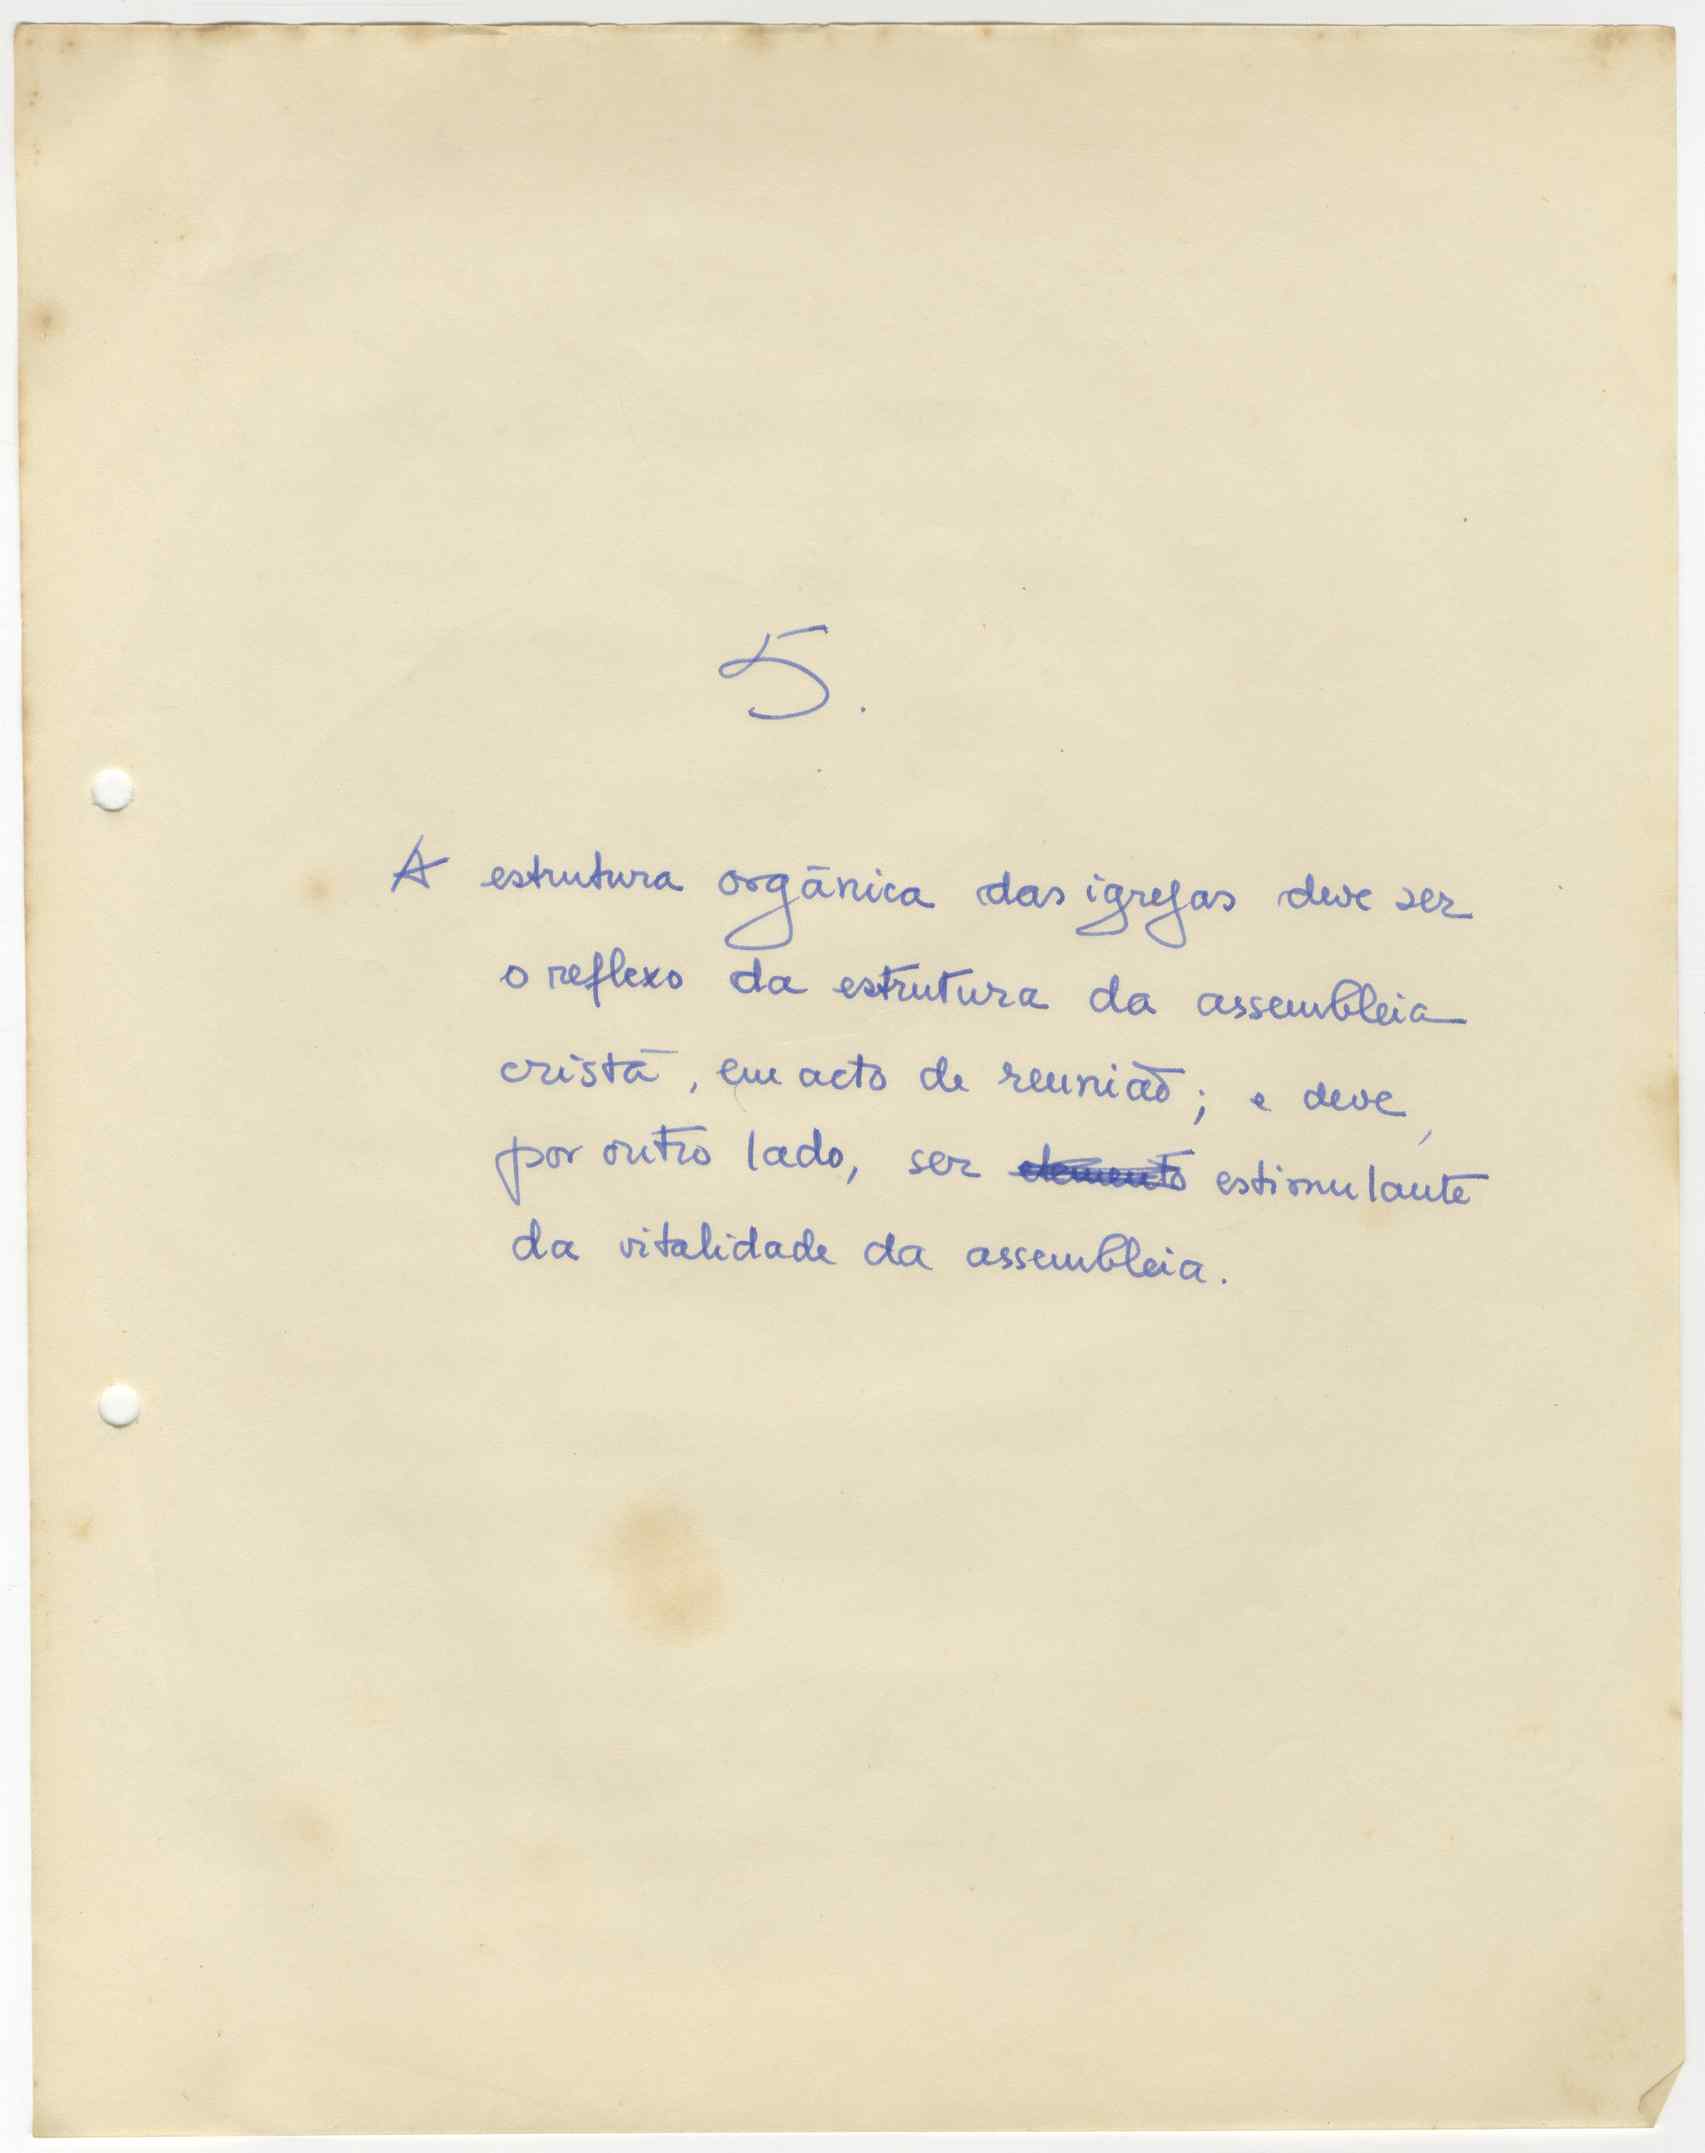 5.
A estrutura orgânica das igrejas deve ser
o reflexo da estrutura da assembleia
cristã, em acto de reunião; e deve,
por outro lado, ser elemento estimulante
da vitalidade da assembleia.